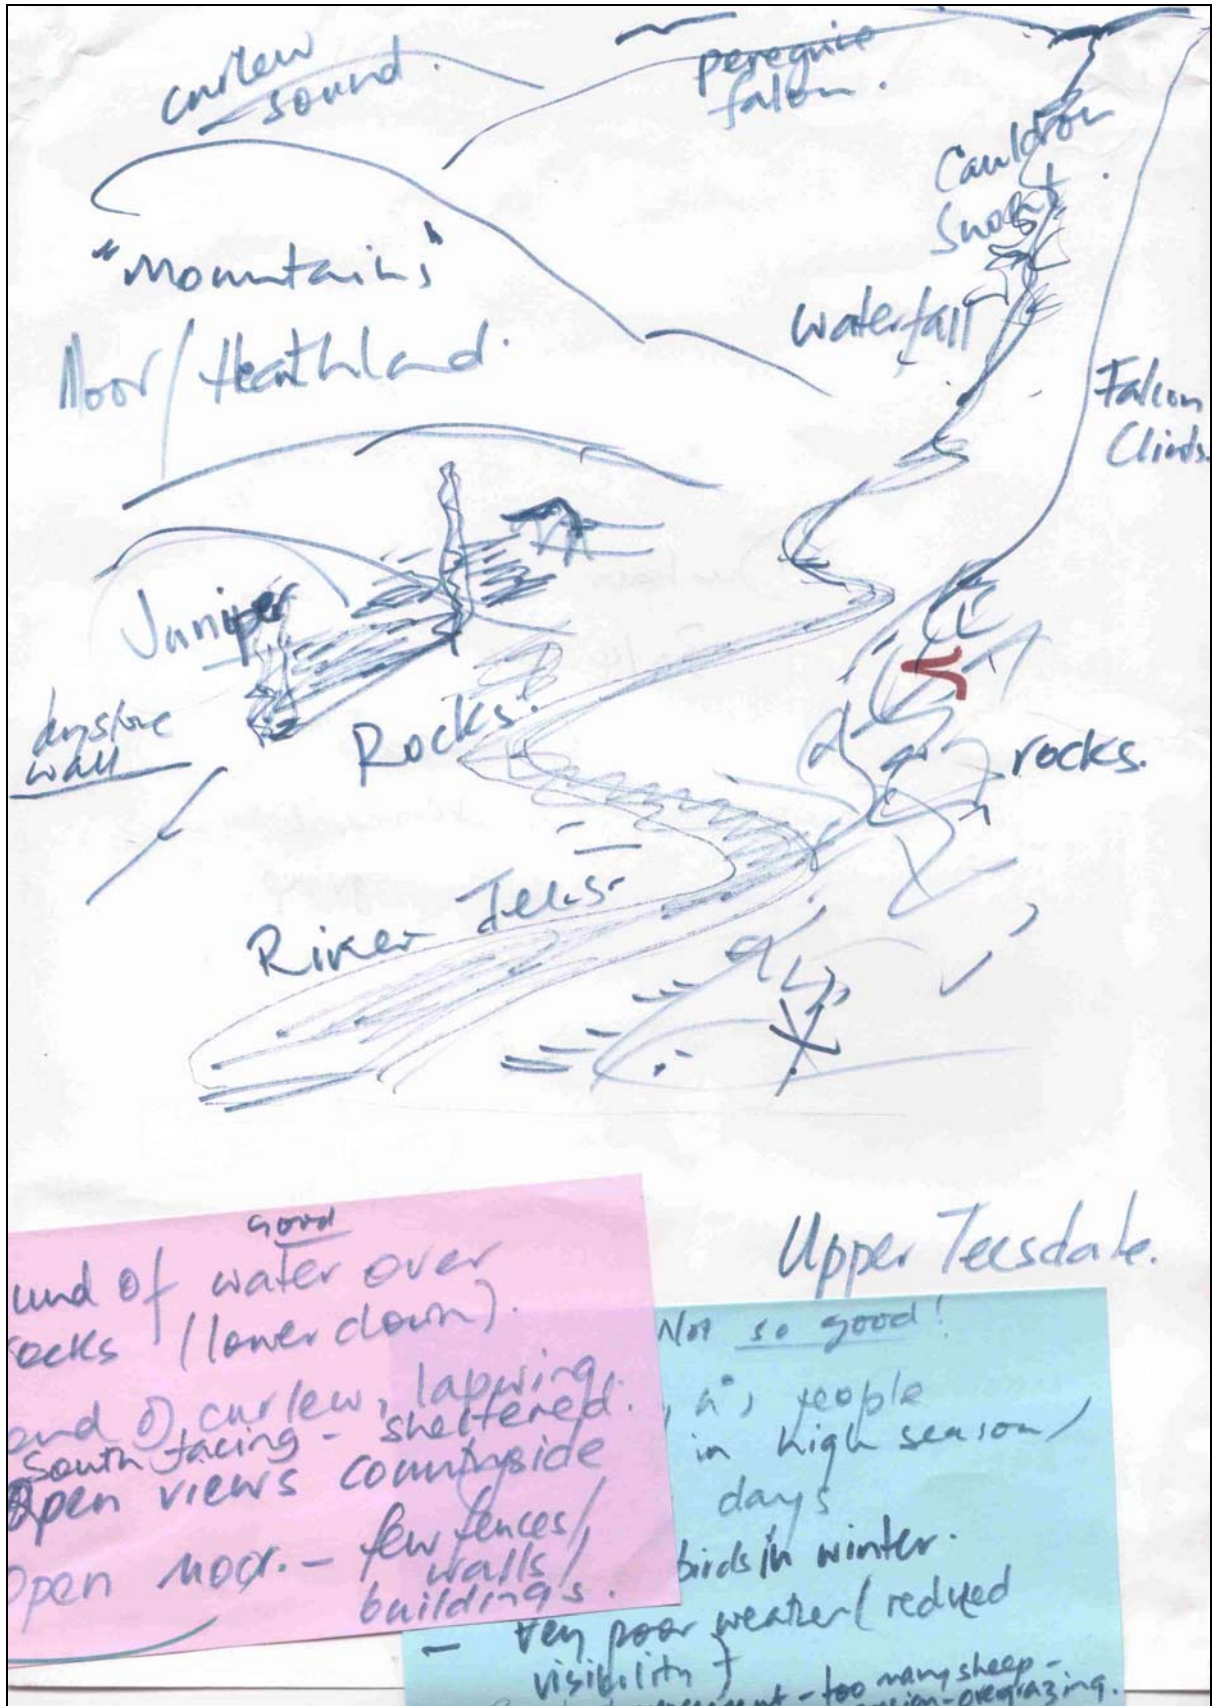 curlew
sound.
peregrine
falcon.
Cauldron
Snout.
"Mountains"
waterfall
Moor/Heathland.
Falcon
Clints.
Juniper
drystone
wall
Rocks.
rocks.
River Tees
Upper Teesdale.
good
und of water over
ocks (lower down).
ound of curlew, lapwing,
South facing - sheltered.
Open views countryside
Open moor. - few fences/
walls/
buildings.
Not so good!
people
in high season/
days
birds in winter.
- Very poor weather/reduced
visibility
- too many sheep -
- overgrazing.